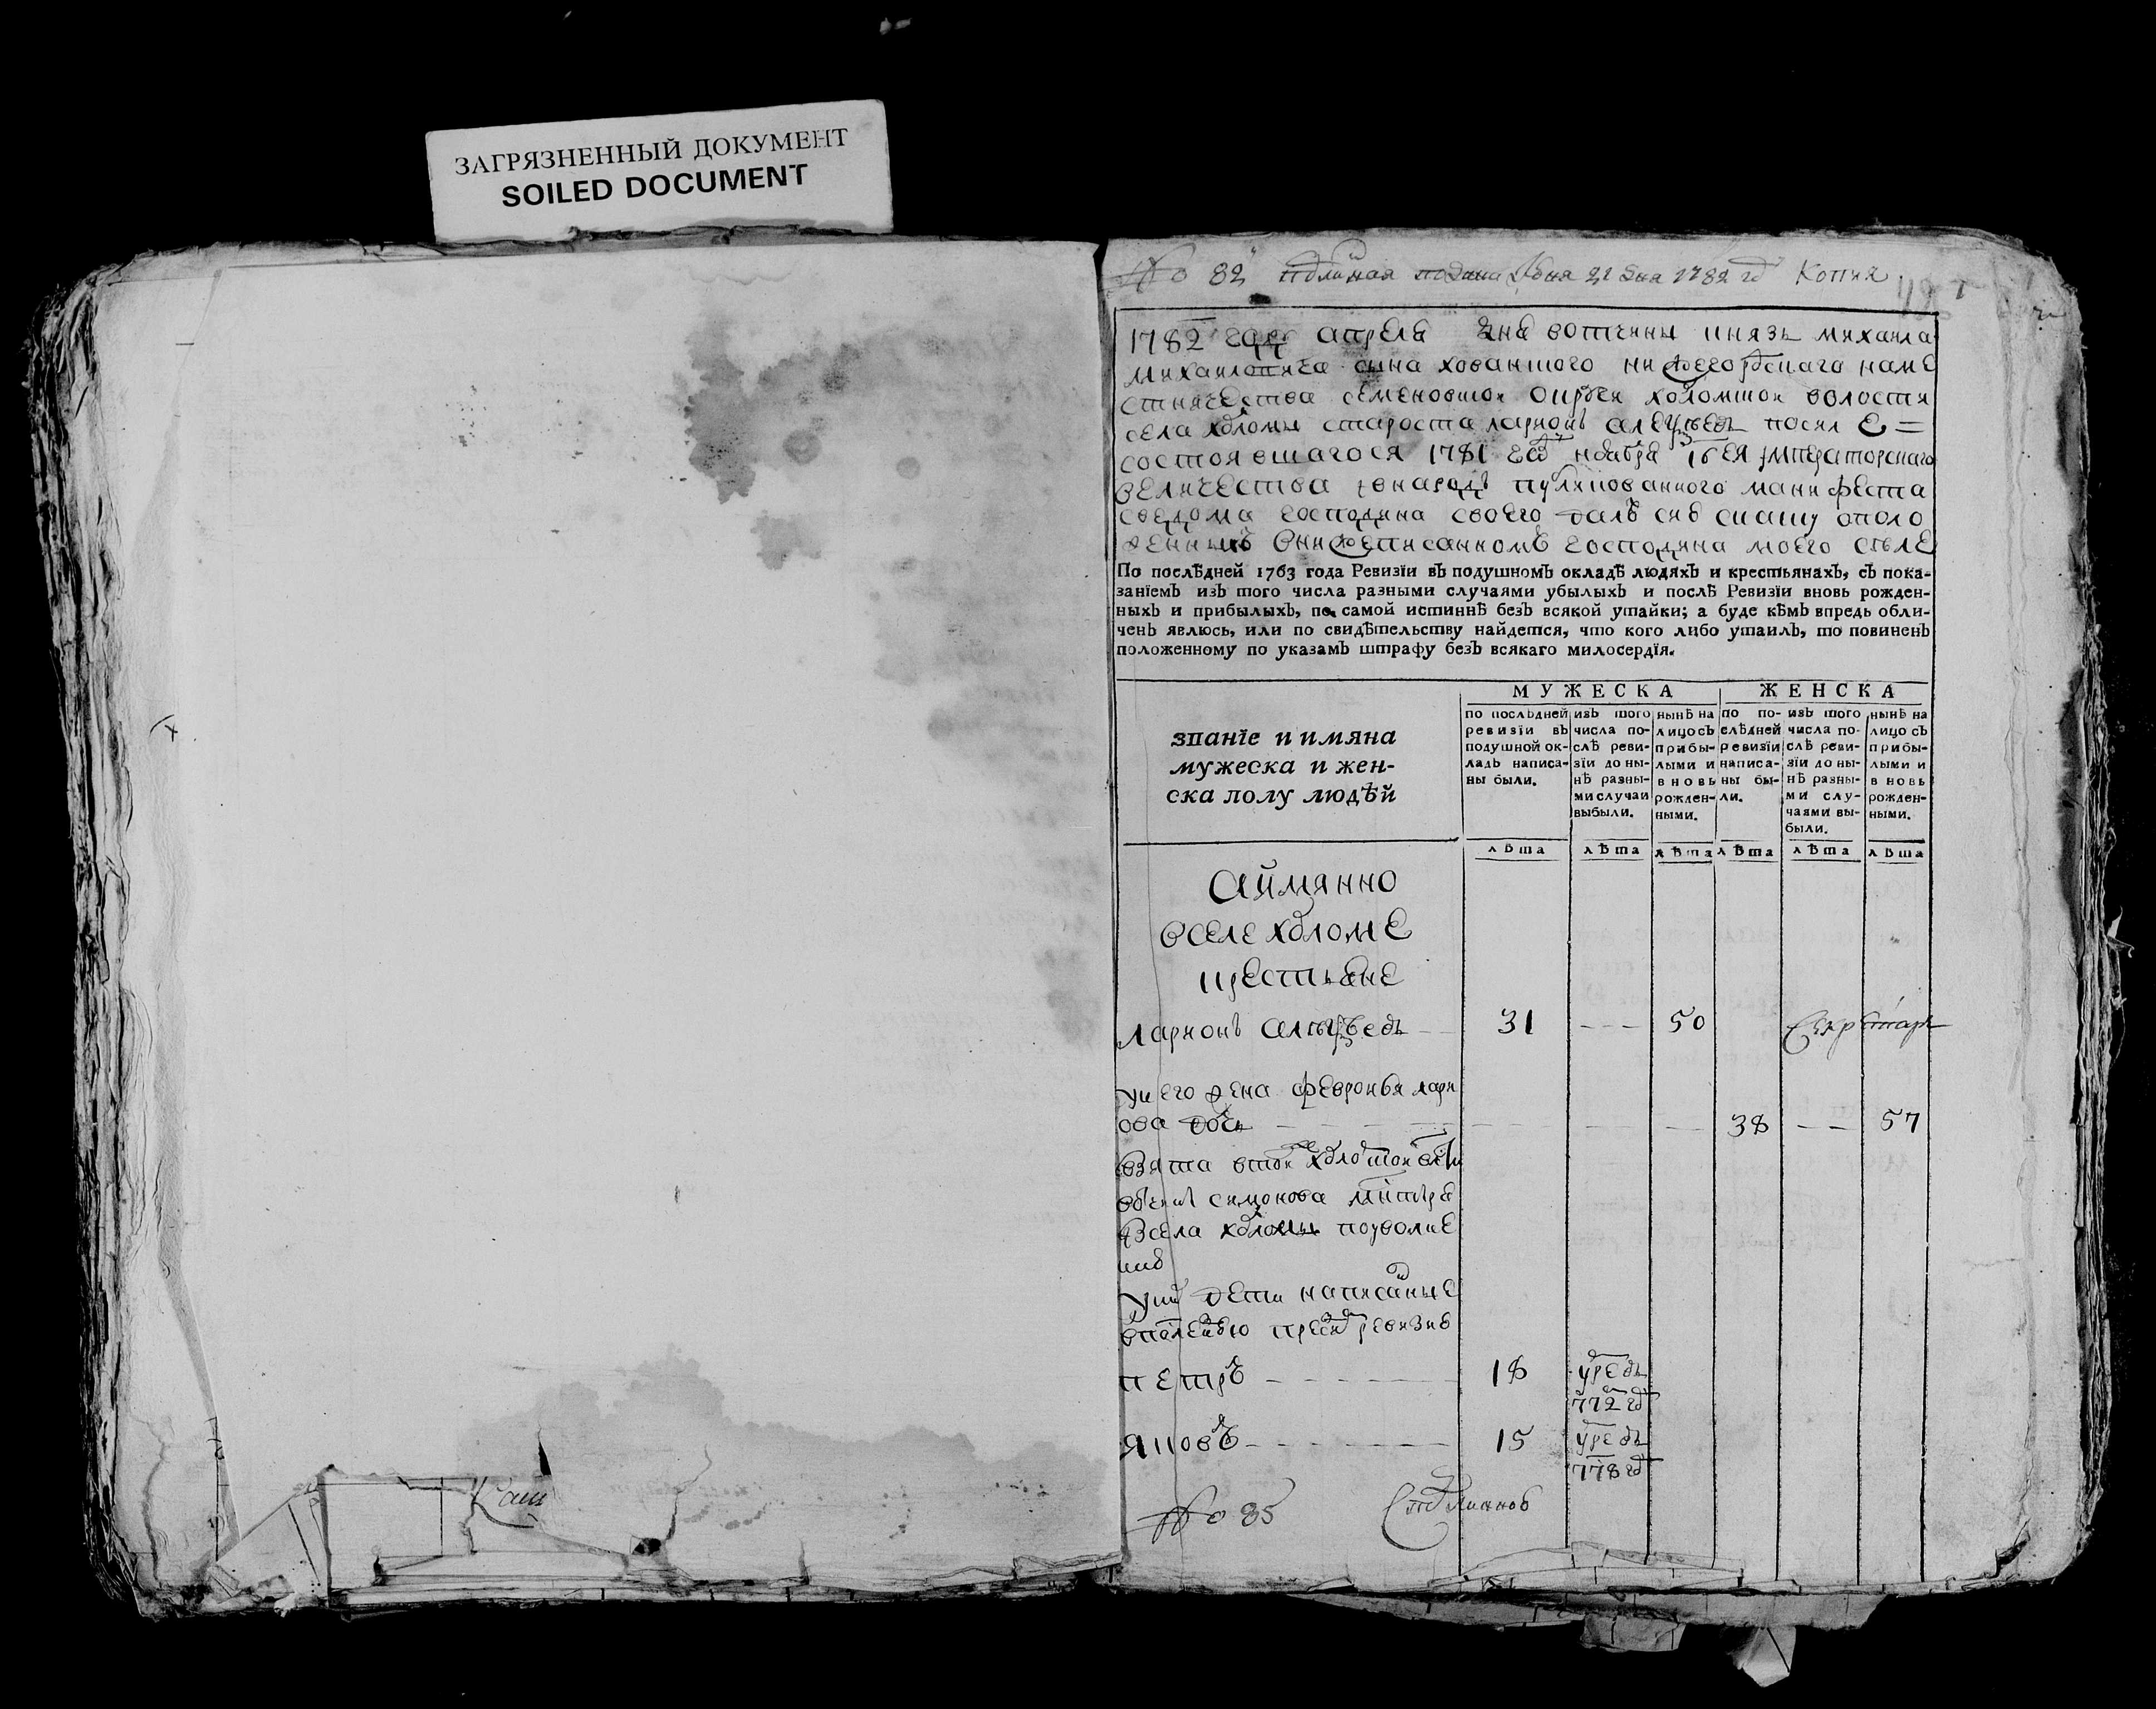 ЗАГРЯЗНЕННЫЙ ДОКУМЕНТ
SOILED DOCUMENT
№ 82 подлинная подана 21 дня 1782 год Копия
1782 году апреля дня вотчины князь михаила
михаиловича сына хованского нижегородскаго наме
стничества семеновской округи холомской волости
села холомы староста ларионъ посил е =
состоявшагося 1781 год ноября 16 ея императорскаго
величества внародъ публикованного манифеста
сведома господина своего далъ сию скаску о поло
женныхъ внижеписанномъ господина моего селе
По послѣдней 1763 года Ревизїи въ подушномъ окладѣ людяхъ и крестьянахъ, съ пока-
занїемъ изъ того числа разными случаями убылыхъ и послѣ Ревизїи вновь рожден-
ныхъ и прибылыхъ, по самой истиннѣ безъ всякой утайки; а буде кѣмъ впредь обли-
ченъ явлюсь, или по свидѣтельству найдется, что кого либо утаилъ, то повиненъ
положенному по указамъ штрафу безъ всякаго милосердїя.
МУЖЕСКА ЖЕНСКА
званїе и имяна
мужеска и жен-
ска полу людѣй
по послѣдней
ревизїи въ
подушной ок-
ладъ написа-
ны были.
изъ того
числа по-
слѣ реви-
зїи до ны-
нѣ разны-
ми случаи
выбыли.
нынѣ на
лицо съ
прибы-
лыми и
вновь
рожден-
ными.
по по-
слѣдней
ревизїи
написа-
ны бы-
ли.
изъ того
числа по-
слѣ реви-
зїи до ны-
нѣ разны-
ми слу-
чаями вы-
были.
нынѣ на
лицо съ
прибы-
лыми и
в новь
рожден-
ными.
лѣта лѣта лѣта лѣта лѣта лѣта
Аймянно
вселе холоме
крестьяне
Ларионъ 31 - - - 50 Секретарь
унего жена февронья лари
ова дочь 38 - - 57
взята втои холомской
симонова
села холомы
нию
уних дети написаные
впоследнюю пред ревизию
петръ 18 772 год
яковъ 15 778 год
№ 85